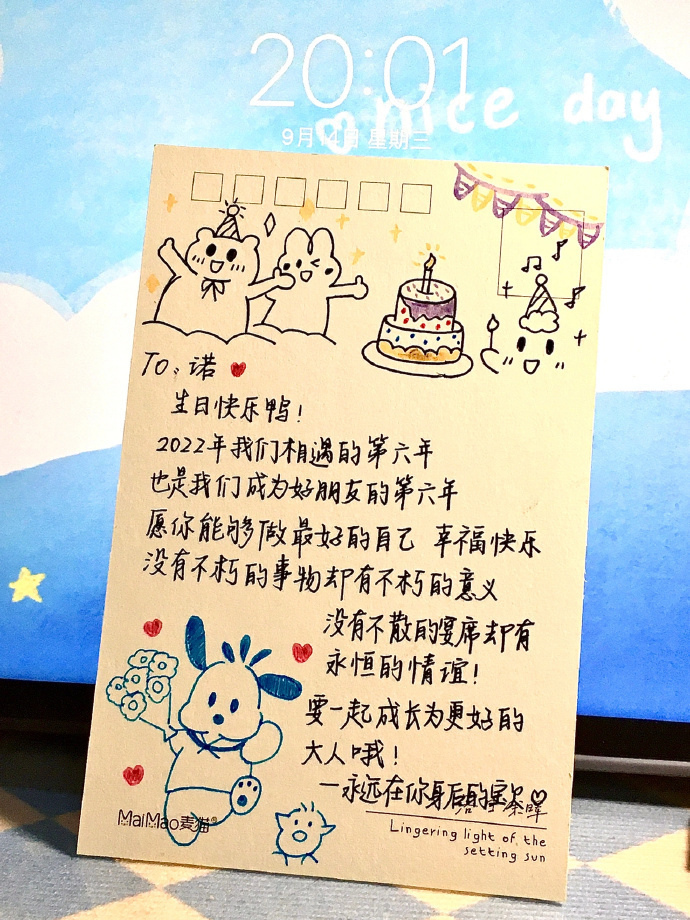 20:01
nice day
9月14日 星期三
TO：诺
生日快乐鸭！
2022年我们相遇的第六年
也是我们成为好朋友的第六年
愿你能够做最好的自己 幸福快乐
没有不朽的事物却有不朽的意义
没有不散的宴席却有
永恒的情谊！
要一起成长为更好的
大人哦！
一永远在你身后的
余晖
Lingering light of the
setting sun
MaiMao麦猫®